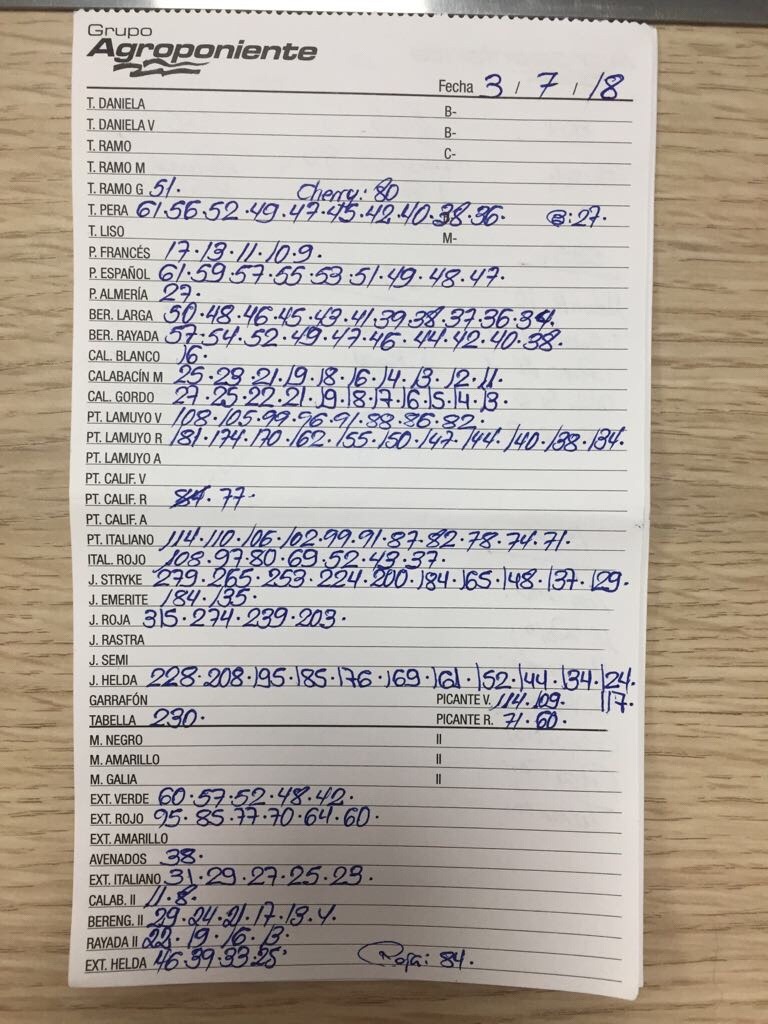 Grupo
Agroponiente
Fecha 3 / 7 / 18
T. DANIELA B-
T. DANIELA V B-
T. RAMO C-
T. RAMO M
T. RAMO G 51. Cherry: 80
T. PERA 61.56.52.49.47.45.42.40.38.36. :27.
T. LISO M-
P. FRANCÉS 17.13.11.10.9.
P. ESPAÑOL 61.59.57.55.53.51.49.48.47.
P. ALMERÍA 27.
BER. LARGA 50.48.46.45.43.41.39.38.37.36.34.
BER. RAYADA 57.54.52.49.47.46.44.42.40.38.
CAL. BLANCO 16.
CALABACÍN M 25.23.21.19.18.16.14.13.12.11.
CAL. GORDO 27.25.22.21.19.18.17.16.15.14.13.
PT. LAMUYO V 108.105.99.96.91.88.86.82.
PT. LAMUYO R 181.174.170.162.155.150.147.144.140.138.134.
PT. LAMUYO A
PT. CALIF. V
PT. CALIF. R 84.77.
PT. CALIF. A
PT. ITALIANO 114.110.106.102.99.91.87.82.78.74.71.
ITAL. ROJO 108.97.80.69.52.43.37.
J. STRYKE 279.265.253.224.200.184.165.148.137.129.
J. EMERITE 184.135.
J. ROJA 315.274.239.203.
J. RASTRA
J. SEMI
J. HELDA 228.208.195.185.176.169.161.152.144.134.124.
117.
GARRAFÓN PICANTE V. 114.109.
TABELLA 230. PICANTE R. 71.60.
M. NEGRO II
M. AMARILLO II
M. GALIA II
EXT. VERDE 60.57.52.48.42.
EXT. ROJO 95.85.77.70.64.60.
EXT. AMARILLO
AVENADOS 38.
EXT. ITALIANO 31.29.27.25.23.
CALAB. II 11.8.
BERENG. II 29.24.21.17.13.4.
RAYADA II 22.19.16.13.
EXT. HELDA 46.39.33.25. Roja: 84.